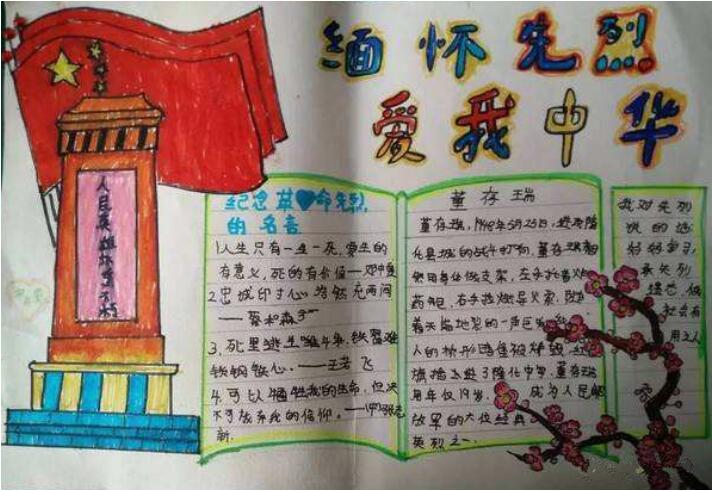 缅怀先烈
爱我中华
人民英雄永垂不朽
纪念革命先烈
的名言
1.人生只有一生一死,要生的
有意义,死的有价值——邓中夏
2.忠诚印寸心,浩然充两间
——蔡和森
3.死里逃生唯斗争,铁窗难
锁钢铁心.——王若飞
4.可以牺牲我的生命,但决
不可放弃我的信仰。——
新.
董存瑞
董存瑞,1948年5月25日,
化县城的战斗打响,董存瑞
用身体做支架,左手托着炸
药包,右手拉燃导火索,随
着天崩地裂的一声巨
人的桥形碉堡被炸毁,红
旗插上进了隆化中学,董存瑞
年仅19岁,成为人民解
放军的大位经典
英烈之一.
我对先烈
说的话
好好学习,
承先烈
遗志,做
社会有
用之人